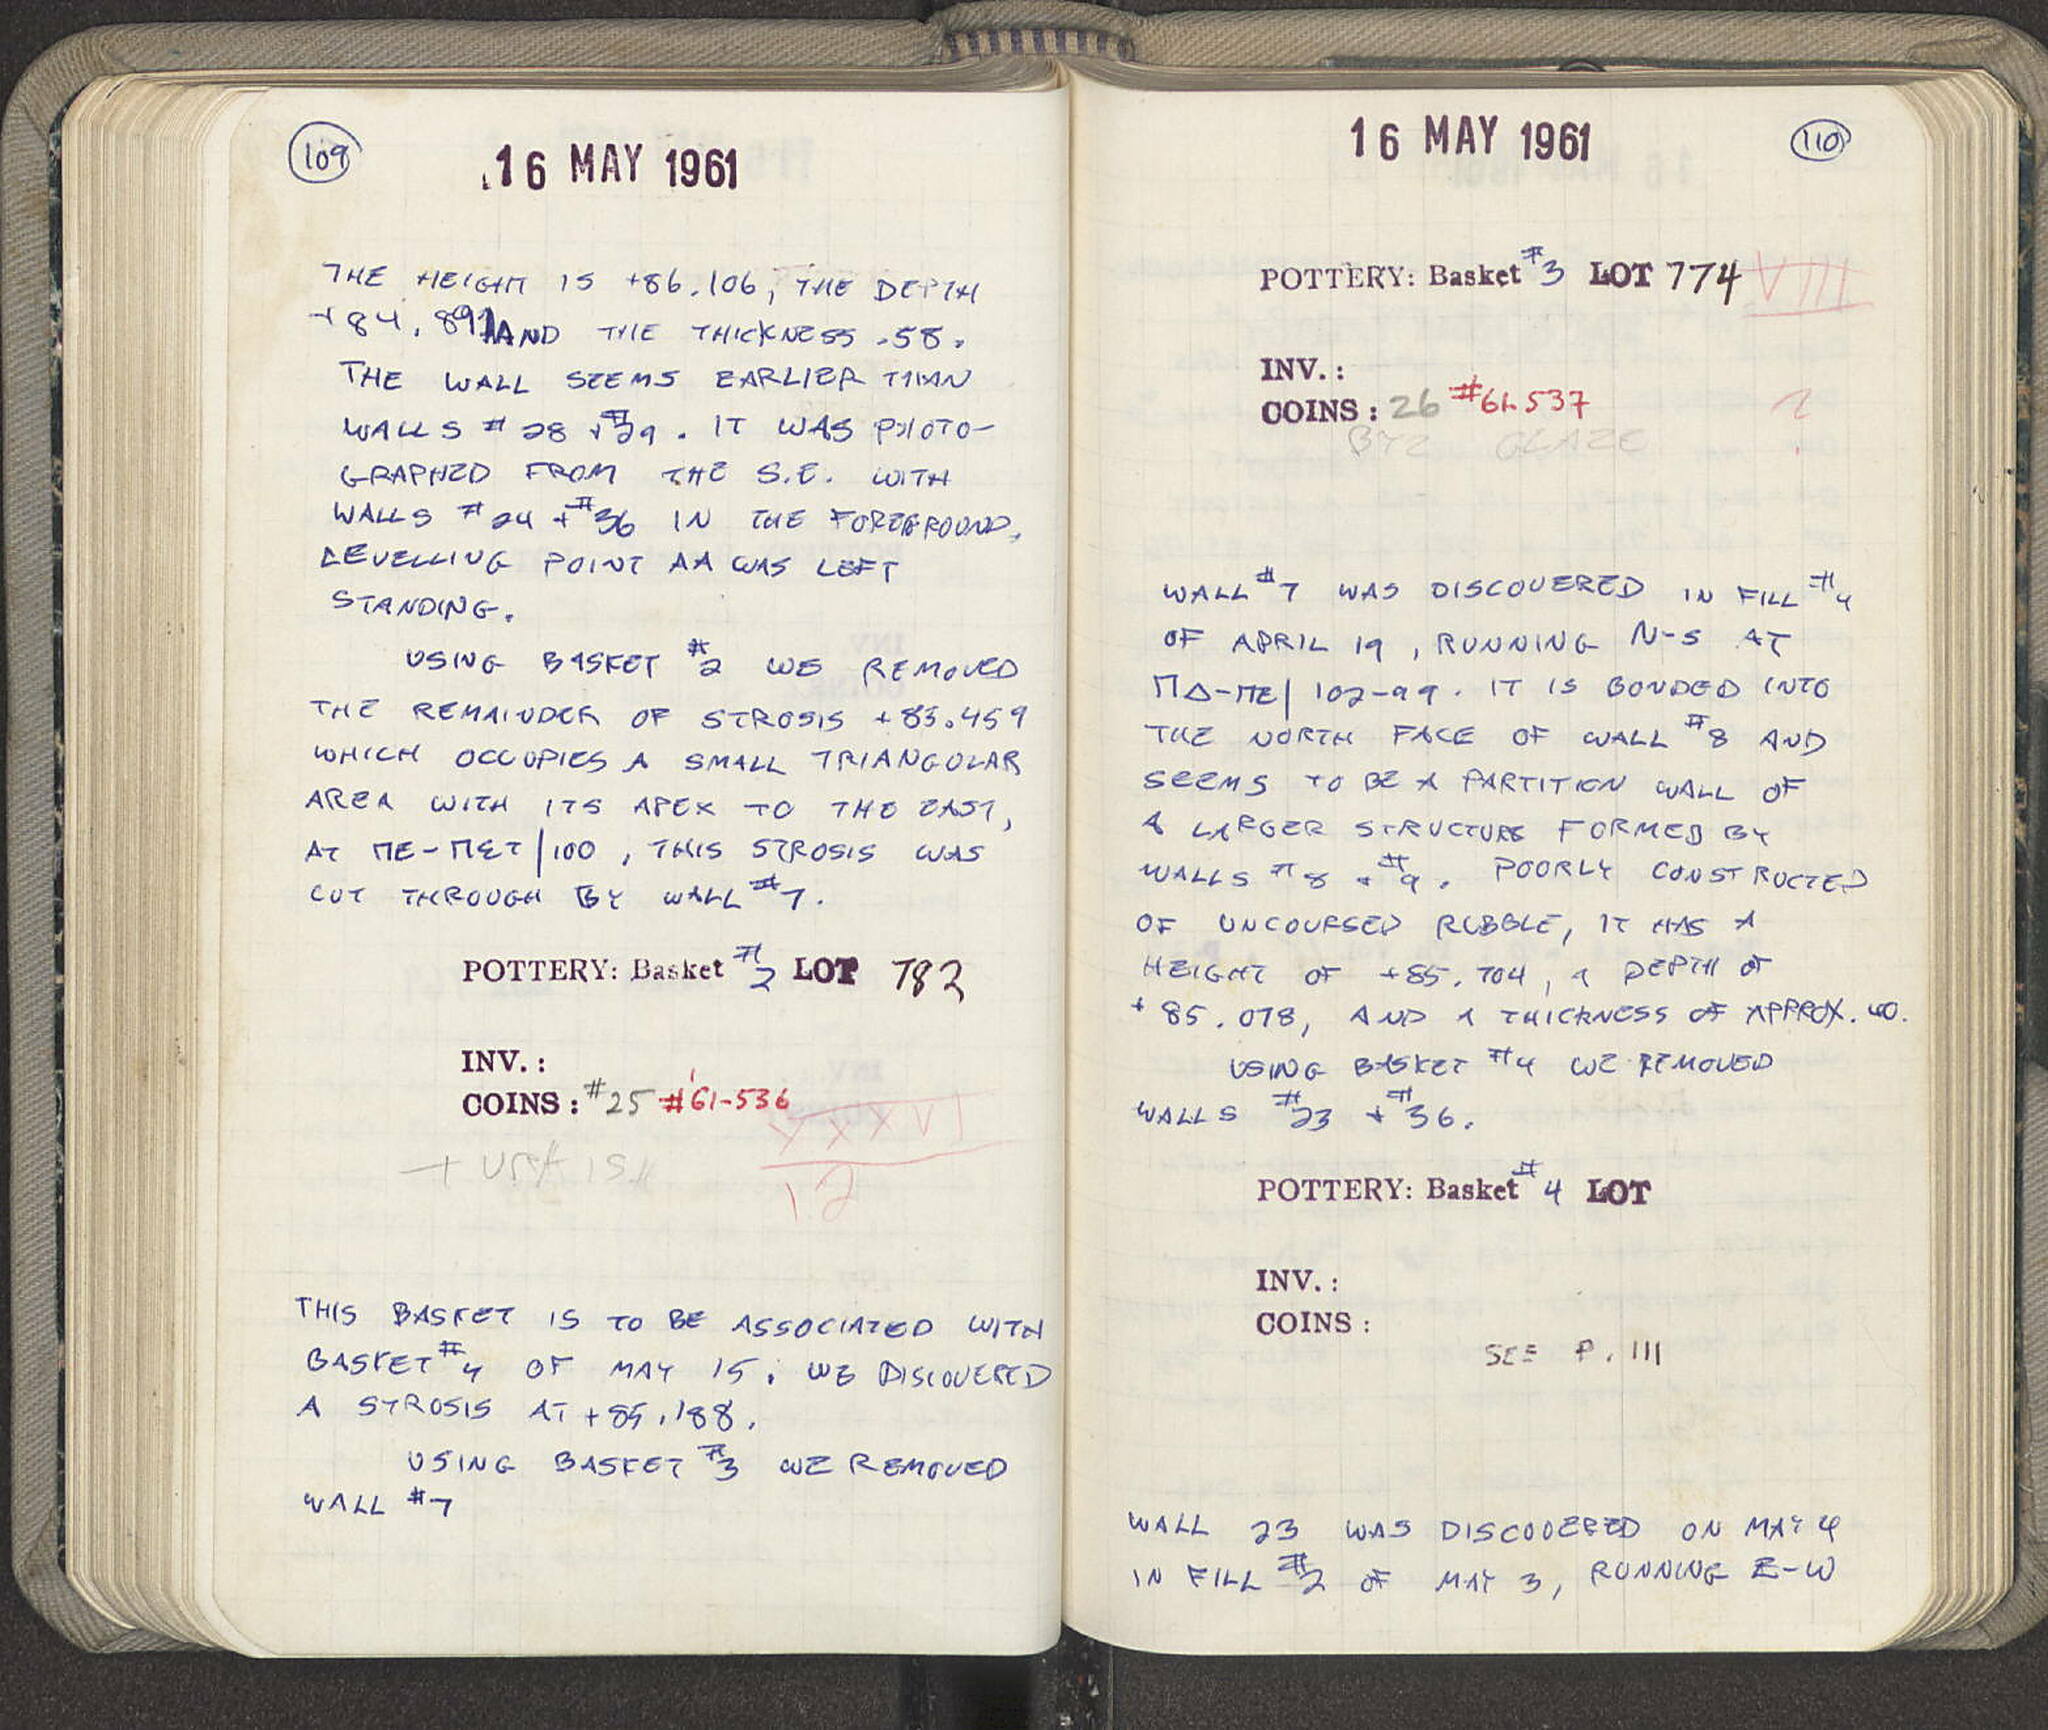 109
16 MAY 1961
THE HEIGHT IS +86.106, THE DEPTH
+84.891 AND THE THICKNESS .58.
THE WALL SEEMS EARLIER THAN
WALLS #28 + #29. IT WAS PHOTO-
GRAPHED FROM THE S.E. WITH
WALLS #24 + #36 IN THE FOREGROUND.
LEVELLING POINT AA WAS LEFT
STANDING.
USING BASKET #2 WE REMOVED
THE REMAINDER OF STROSIS +85.459
WHICH OCCUPIES A SMALL TRIANGULAR
AREA WITH ITS APEX TO THE EAST,
AT ΠΕ-ΠΣΤ/100, THIS STROSIS WAS
CUT THROUGH BY WALL #7.
POTTERY: Basket #2 LOT 782
INV.:
COINS: #25 #61-536
XXXVI
12
THIS BASKET IS TO BE ASSOCIATED WITH
BASKET #4 OF MAY 15. WE DISCOVERED
A STROSIS AT +85.188.
USING BASKET #3 WE REMOVED
WALL #7
16 MAY 1961
110
POTTERY: Basket #3 LOT 774 VIII
INV.:
COINS: 26 #61-537
BYZ GLAZE
WALL #7 WAS DISCOVERED IN FILL #4
OF APRIL 19, RUNNING N-S AT
ΠΔ-ΠΕ/102-99. IT IS BONDED INTO
THE NORTH FACE OF WALL #8 AND
SEEMS TO BE A PARTITION WALL OF
A LARGER STRUCTURE FORMED BY
WALLS #8 + #9. POORLY CONSTRUCTED
OF UNCOURSED RUBBLE, IT HAS A
HEIGHT OF +85.704, A DEPTH OF
+85.078, AND A THICKNESS OF APPROX. .40.
USING BASKET #4 WE REMOVED
WALLS #23 + #36.
POTTERY: Basket #4 LOT
INV.:
COINS:
SEE P. 111
WALL 23 WAS DISCOVERED ON MAY 4
IN FILL #2 OF MAY 3, RUNNING E-W